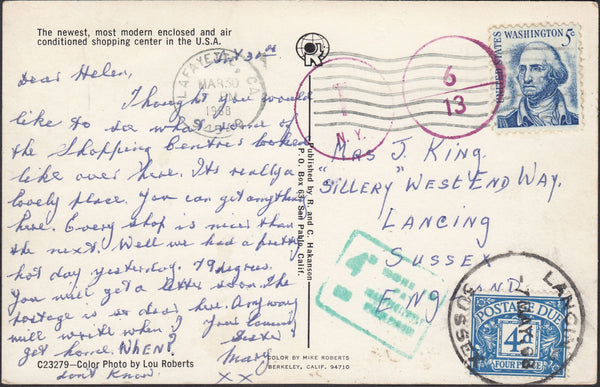 The newest, most modern enclosed and air
conditioned shopping center in the U.S.A.
Dear Helen,
Thought you would
like to see what some of
the Shopping Centres looked
like over here. Its really a
lovely place. You can get anything
here. Every shop is nicer than
the next. Well we had a pretty
hot day yesterday. 79 degrees.
You will get a letter soon. The
postage is so dear here. Anyway
will write when
get home. WHEN?
dont know.
Mary
XX
C23279—Color Photo by Lou Roberts
Published by R. and C. Hakanson
P. O. Box 63 San Pablo, Calif.
COLOR BY MIKE ROBERTS
BERKELEY, CALIF. 94710
LAFAYETTE, CA
MAR 30
PM
1968
T
N.Y.
6
13
UNITED STATES
WASHINGTON 5c
MRS J. KING
"SILLERY" WEST END WAY.
LANCING
SUSSEX
ENGLAND
4D
MORE
TO PAY
LANCING
MAY 68
SUSSEX
POSTAGE DUE
4D
FOUR PENCE